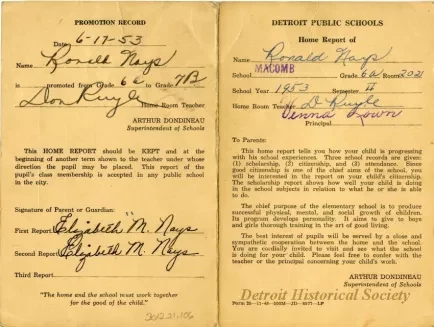 PROMOTION RECORD
Date 6-17-53
Name Ronald Nays
is promoted from Grade 6a to Grade 7B
Don Ruyle Home Room Teacher
ARTHUR DONDINEAU
Superintendent of Schools
This HOME REPORT should be KEPT and at the
beginning of another term shown to the teacher under whose
direction the pupil may be placed. This report of the
pupil's class membership is accepted in any public school
in the city.
Signature of Parent or Guardian:
First Report Elizabeth M. Nays
Second Report Elizabeth M. Nays
Third Report
"The home and the school must work together
for the good of the child."
2012.21.106
DETROIT PUBLIC SCHOOLS
Home Report of
Name Ronald Nays
School MACOMB Grade 6a Room 202
School Year 1953 Semester II
Home Room Teacher D Ruyle
Principal
To Parents:
This home report tells you how your child is progressing
with his school experiences. Three school records are given:
(1) scholarship, (2) citizenship, and (3) attendance. Since
good citizenship is one of the chief aims of the school, you
will be interested in the report on your child's citizenship.
The scholarship report shows how well your child is doing
in the school subjects in relation to what he or she is able
to do.
The chief purpose of the elementary school is to produce
successful physical, mental, and social growth of children.
Its program develops personality. It aims to give to boys
and girls thorough training in the art of good living.
The best interest of pupils will be served by a close and
sympathetic cooperation between the home and the school.
You are cordially invited to visit and see what the school
is doing for your child. Please feel free to confer with the
teacher or the principal concerning your child's work.
ARTHUR DONDINEAU
Superintendent of Schools
Detroit Historical Society